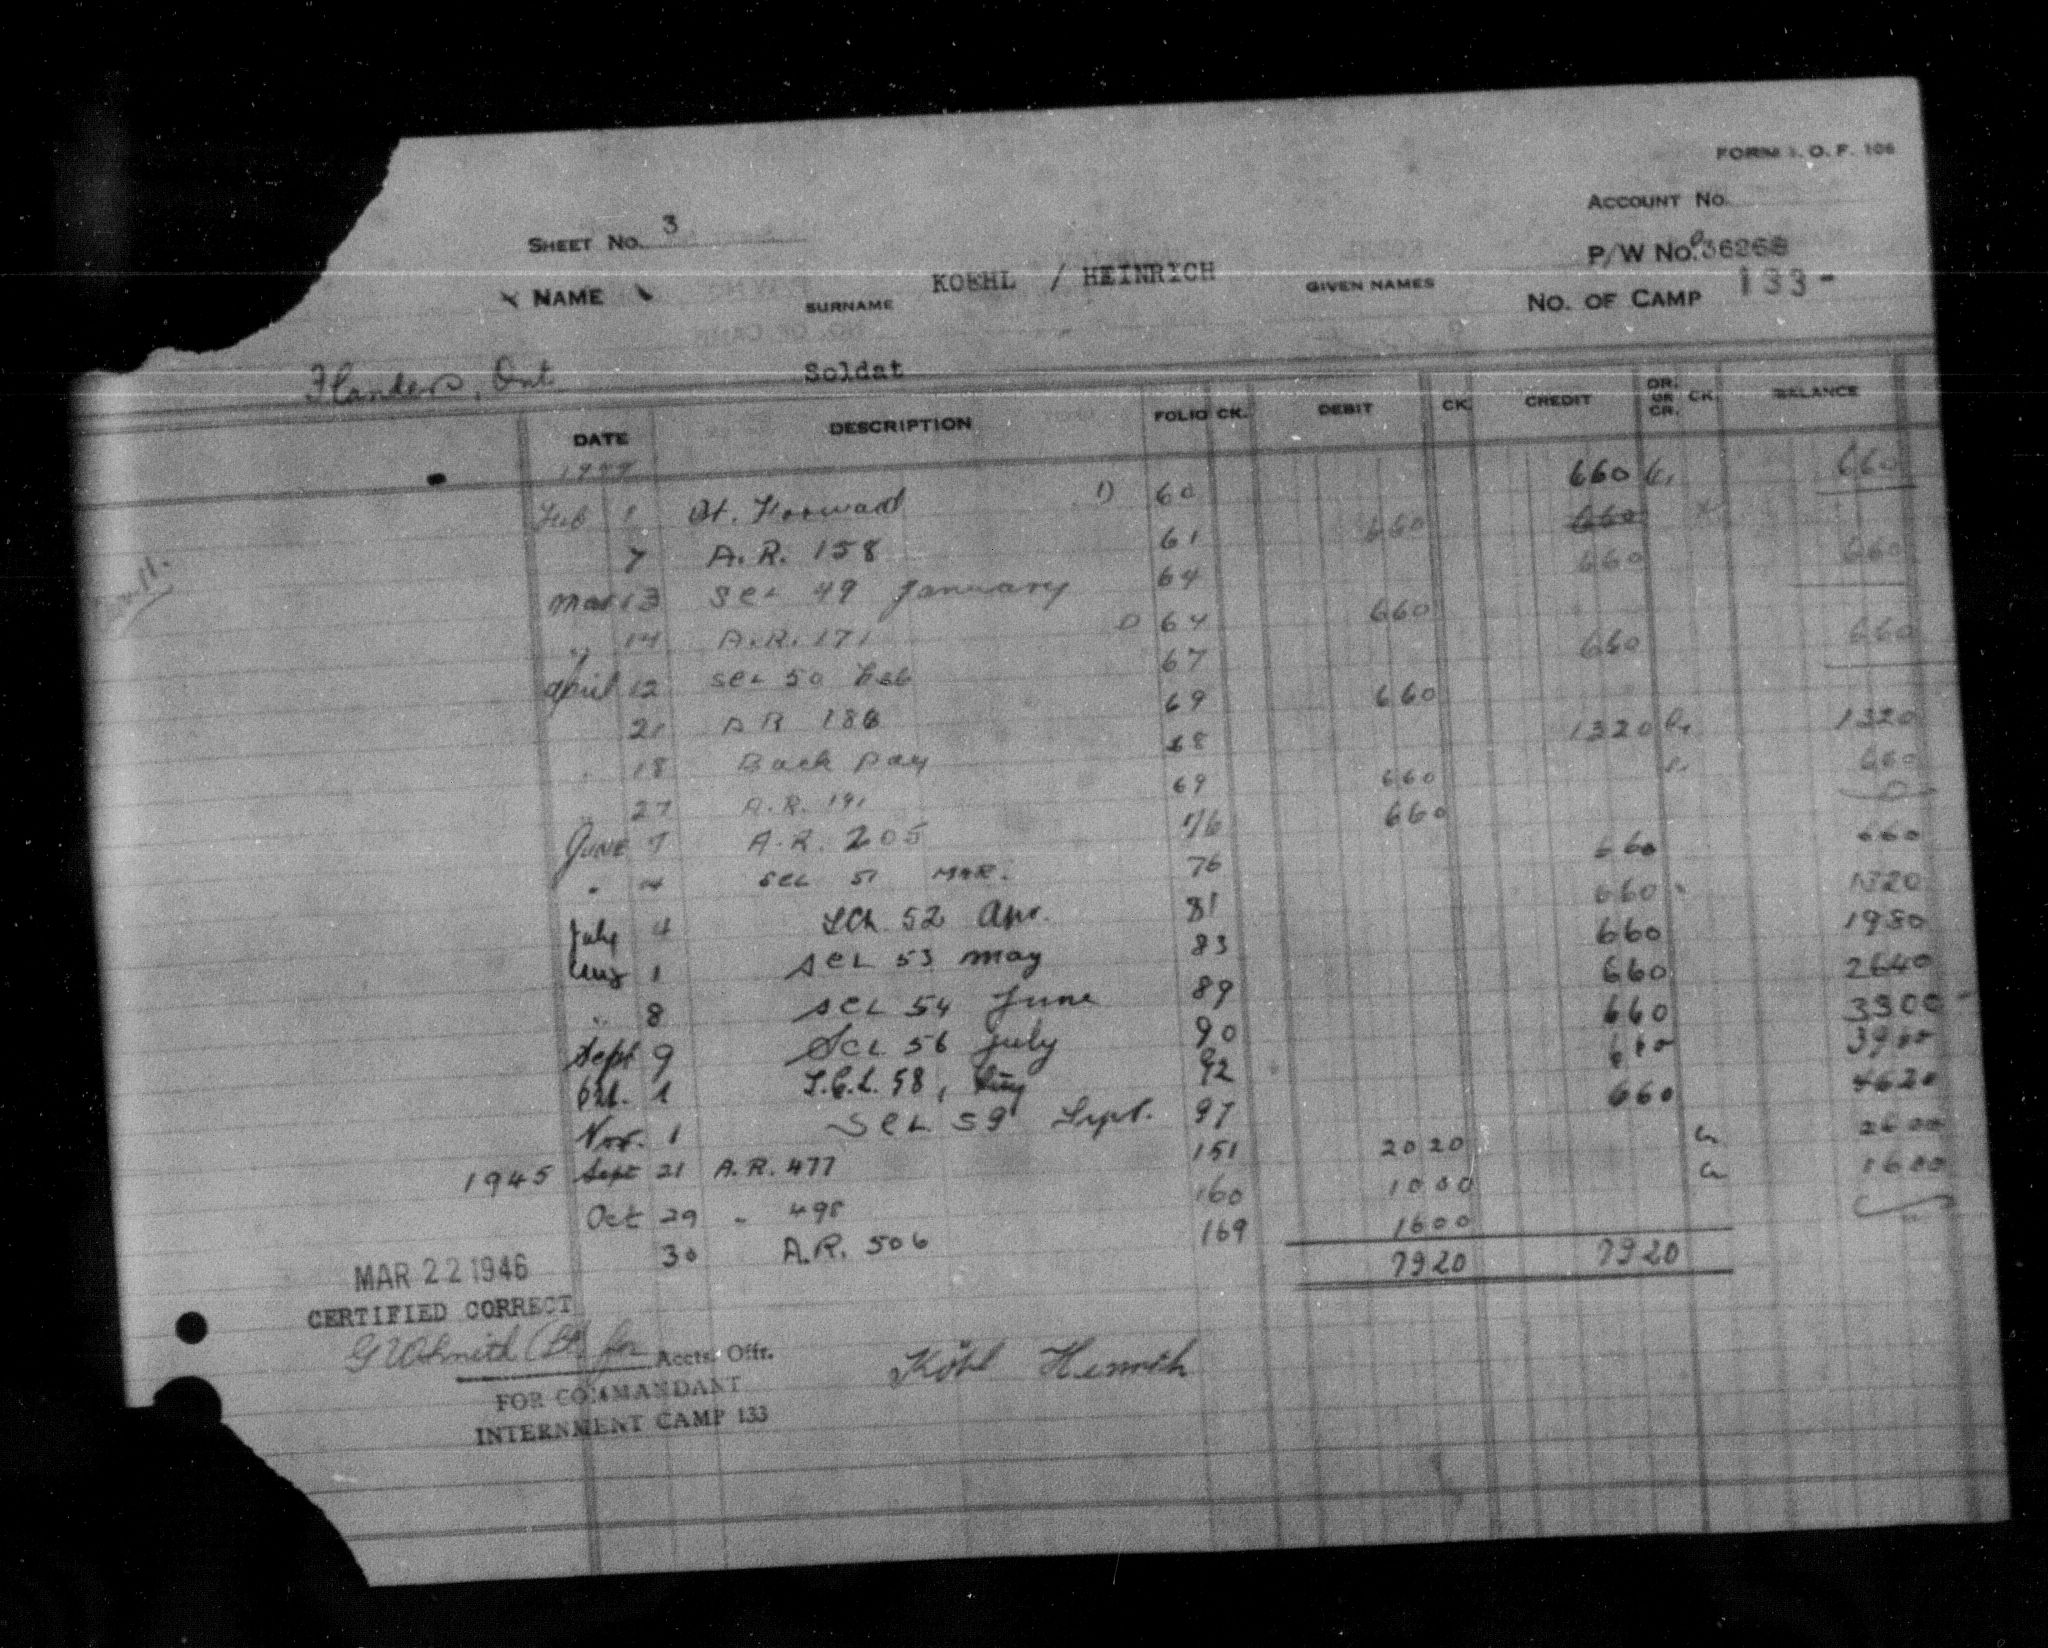 FORM I. O. F. 106
ACCOUNT NO.
SHEET NO. 3
P/W NO. 036268
NAME SURNAME KOEHL / HEINRICH GIVEN NAMES
NO. OF CAMP 133-
Flanders, Ont Soldat
DATE DESCRIPTION FOLIO CK. DEBIT CK. CREDIT DR. OR CR. CK. BALANCE
Feb 1 Bt. Forward 60 660 Cr 660
7 A.R. 158 61 660 660
Mar 13 SCL 49 January 64 660 660
" 14 A.R. 171 64 660
April 12 SCL 50 Feb 67 660 660
21 A R 186 69 660
" 18 Back Pay 68 1320 Cr 1320
27 A.R. 191 69 660 660
June 7 A.R. 205 76 660 0
" 14 SCL 51 MAR. 76 660 660
July 4 SCL 52 Apr. 81 660 1320
Aug 1 SCL 53 May 83 660 1980
" 8 SCL 54 June 89 660 2640
Sept 9 SCL 56 July 90 660 3300
Oct. 1 S.C.L. 58, Aug 92 660 3960
Nov. 1 SCL 59 Sept. 97 660 4620
1945 Sept 21 A.R. 477 151 2020 Cr 2600
Oct 29 " 498 160 1000 Cr 1600
30 A.R. 506 169 1600
7920 7920
MAR 22 1946
CERTIFIED CORRECT
G W Smith (Lt) for Accts. Offr.
FOR COMMANDANT
INTERNMENT CAMP 133
Köhl Heinrich